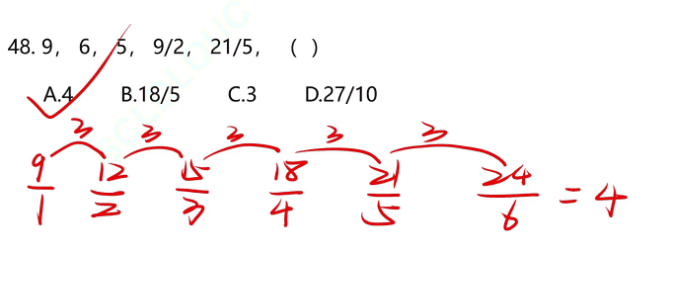 48. 9， 6， 5， 9/2， 21/5，（ ）
A.4 B.18/5 C.3 D.27/10
3 3 3 3 3
9/1 12/2 15/3 18/4 21/5 24/6 = 4